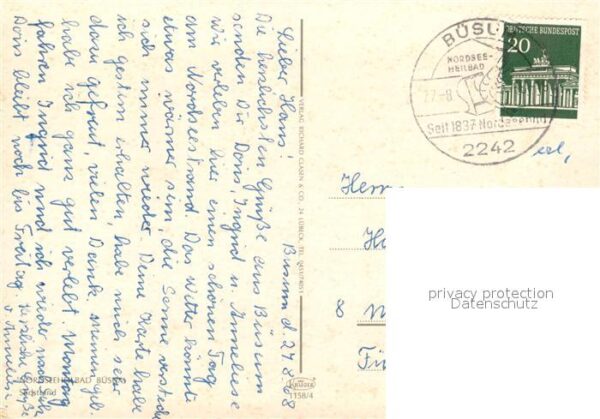 Büsum d. 27.8.68
Lieber Hans!
Die herzlichsten Grüße aus Büsum
senden Dir Doris, Ingrid u. Anneliese
wir verleben hier einen schönen Tag
am Nordseestrand. Das Wetter könnte
etwas wärmer sein, die Sonne versteckt
sich immer wieder. Deine Karte habe
ich gestern erhalten, habe mich sehr
darüber gefreut, vielen Dank. meinen geb.
habe ich ganz gut verlebt. Montag
fahren Ingrid und ich wieder nach
Doris bleibt noch bis Freitag. herzliche Grüße
v. Anneliese
NORDSEEHEILBAD BÜSUM
Südstrand
VERLAG RICHARD CLASEN & CO., 24 LÜBECK, TEL.
KRÜGER
1158/4
DEUTSCHE BUNDESPOST
20
BÜSU
NORDSEE-
HEILBAD
Seit 1837 Nordseeheil
2242
Herrn
Ha
8 M
privacy protection
Datenschutz